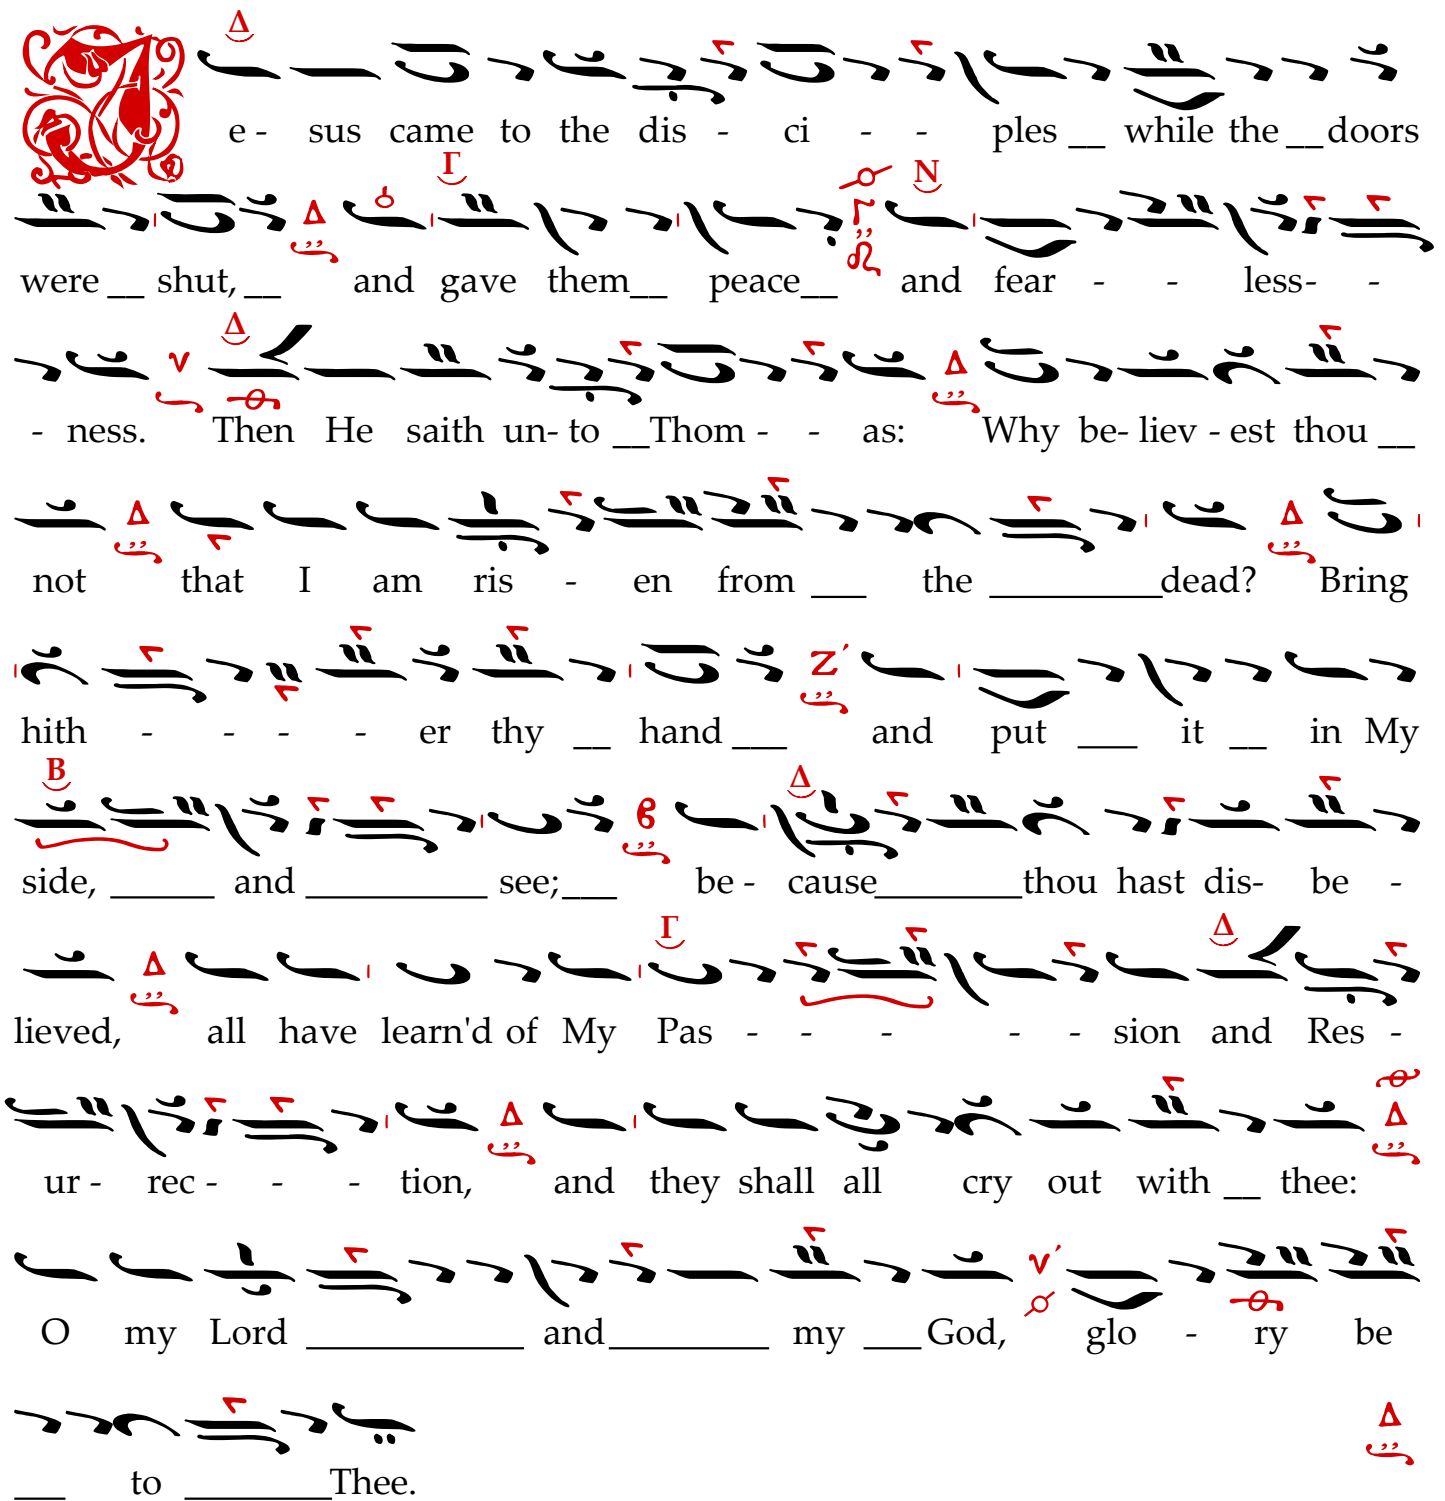 Δ
Je - sus came to the dis - ci - - ples __ while the __ doors
Γ Ν
were __ shut, __ and gave them __ peace __ and fear - - less- -
Δ
- ness. Then He saith un- to __ Thom - - as: Why be- liev - est thou __
not that I am ris - en from ___ the _________ dead? Bring
hith - - - - er thy __ hand ___ and put ___ it __ in My
Β Δ
side, ______ and __________ see; ___ be - cause ________ thou hast dis- be -
Γ Δ
lieved, all have learn'd of My Pas - - - - - sion and Res -
ur - rec - - - tion, and they shall all cry out with __ thee:
O my Lord ____________ and _________ my ___ God, glo - ry be
___ to ________ Thee.